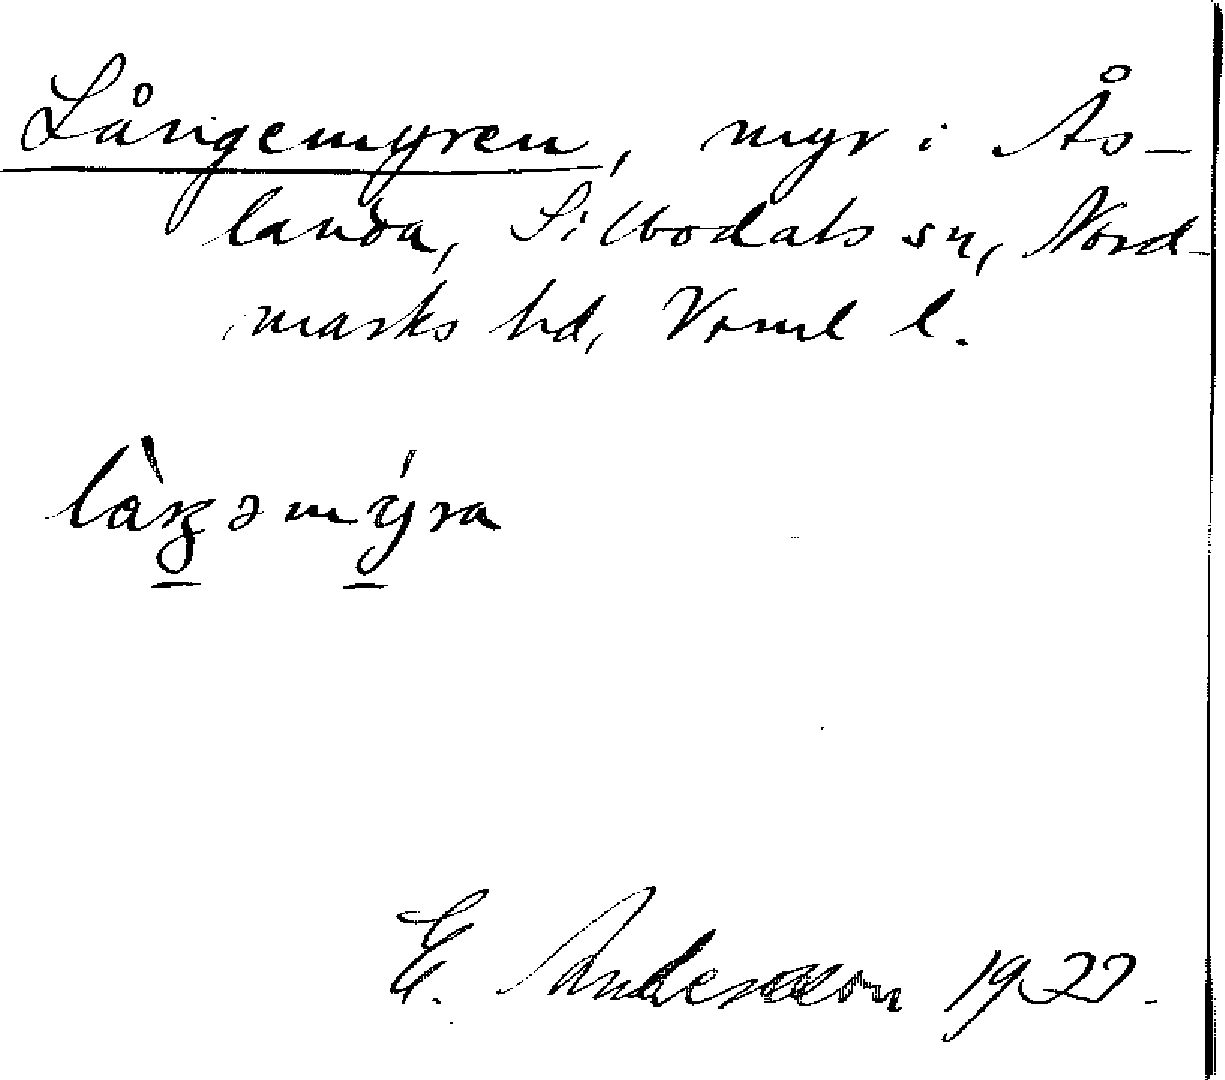 Långemyren, myr i Ås-
landa, Silbodals sn, Nord-
marks hd, Vrml l.
E. Andersson 1922.